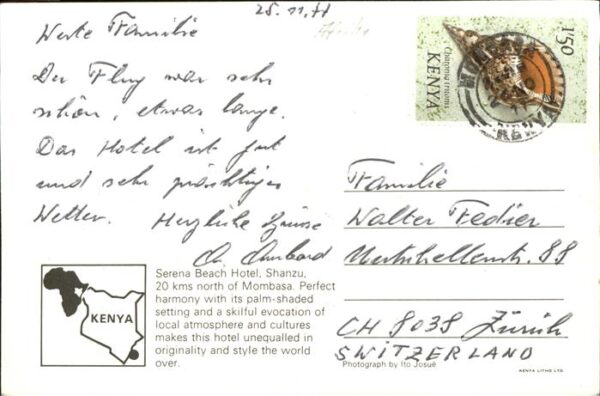 28.11.77
Werte Familie
Der Flug war sehr
schön, etwas lange.
Das Hotel ist gut
und sehr prächtiges
Wetter. Herzliche Grüsse
Charonia tritonis
KENYA
1/50
MOMBASA
KENYA
Familie
Walter Fedier
88
CH 8038 Zürich
SWITZERLAND
KENYA
Serena Beach Hotel, Shanzu,
20 kms north of Mombasa. Perfect
harmony with its palm-shaded
setting and a skilful evocation of
local atmosphere and cultures
makes this hotel unequalled in
originality and style the world
over.
Photograph by Ito Josué
KENYA LITHO LTD.